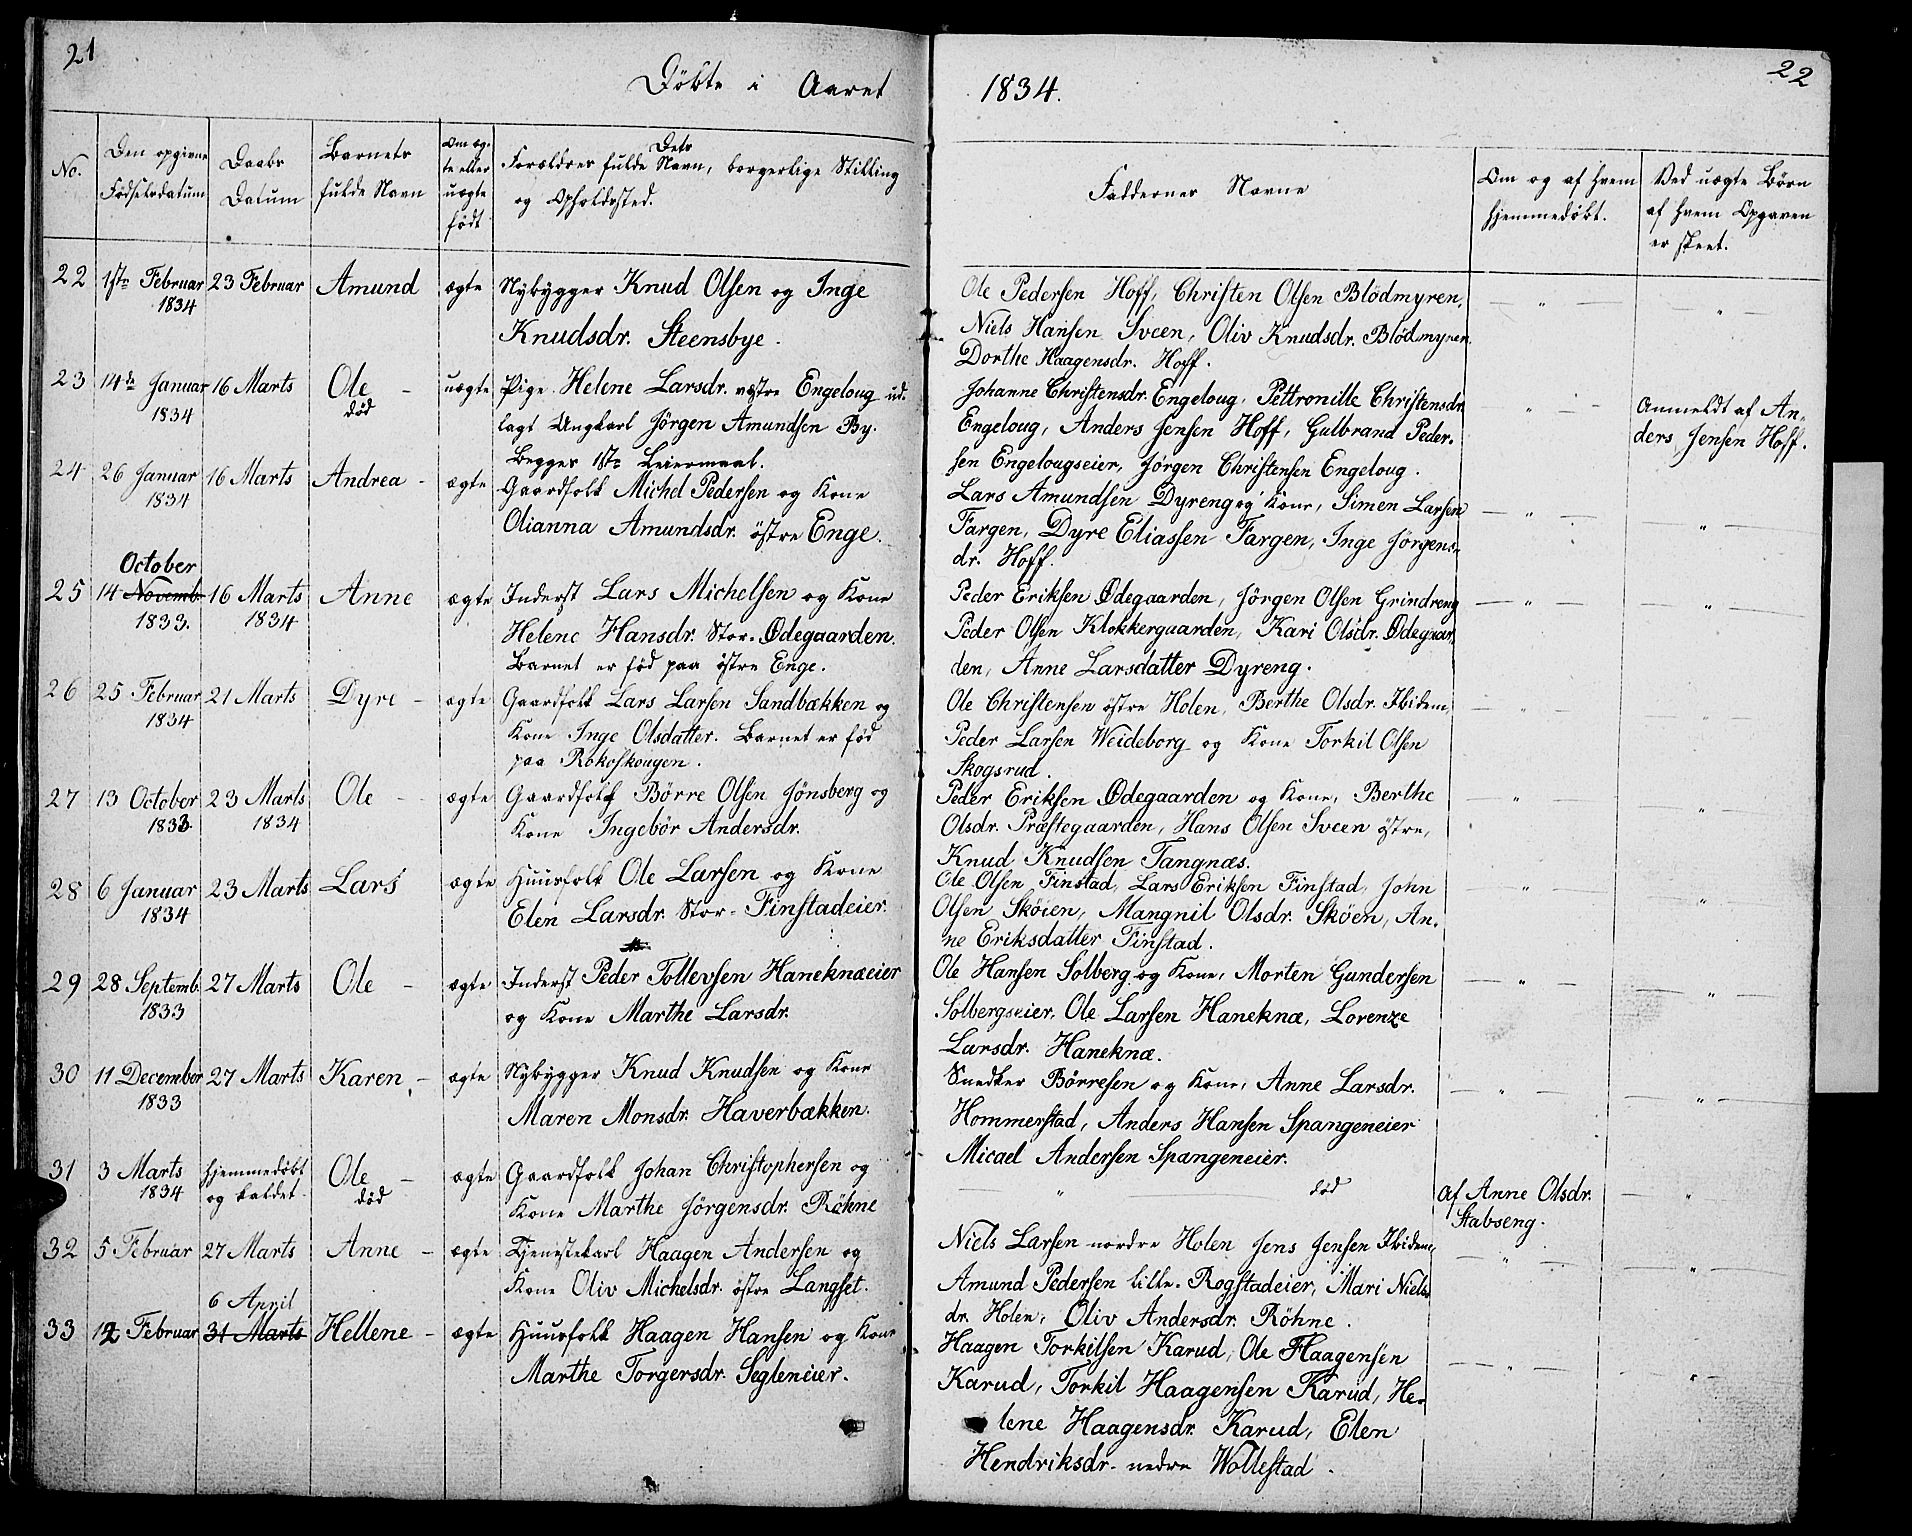 21
Döbte i Aaret
No.
Den opgivne
Fødselsdatum
Daabs
Datum
Barnets
fulde Navn
Om æg-
te eller
uægte
født
Dets
Forældres fulde Navn, borgerlige Stilling
og Opholdssted.
22 1ste Februar 23 Februar Amund ægte Nybygger Knud Olsen og Inge
1834
Knudsdr. Steensbye.
23 14de Januar 16 Marts Ole - uægte Pige Helene Larsdr. vestre Engeloug ud-
1834 død
lagt Ungkarl Jörgen Amundsen By.
Begges 1ste Leiermaal.
24 26 Januar 16 Marts Andrea - ægte Gaardfolk Michel Pedersen og Kone
1834
Olianna Amundsdr. östre Enge.
October
25 14 Novemb. 16 Marts Anne ægte Inderst Lars Michelsen og Kone
1833. 1834
Helene Hansdr. Stor-Ødegaarden.
Barnet er född paa östre Enge.
26 25 Februar 21 Marts Dyre - ægte Gaardfolk Lars Larsen Sandbækken og
1834
Kone Inge Olsdatter. Barnet er född
paa Rokoskougen.
27 13 October 23 Marts Ole - ægte Gaardfolk Börre Olsen Jönsberg og
1833 1834
Kone Ingebör Andersdr.
28 6 Januar 23 Marts Lars ægte Huusfolk Ole Larsen og Kone
1834
Elen Larsdr. Stor-Finstadeier.
29 28 Septemb. 27 Marts Ole - ægte Inderst Peder Tollevsen Haneknæeier
1833
og Kone Marthe Larsdr.
30 11 December 27 Marts Karen - ægte Nybygger Knud Knudsen og Kone
1833
Maren Monsdr. Haverbækken.
31 3 Marts hjemmedöbt Ole - ægte Gaardfolk Johan Christophersen og
1834 og kaldet død
Kone Marthe Jörgensdr. Röhne
32 5 Februar 27 Marts Anne - ægte Tjenestekarl Haagen Andersen og
Kone Oliv Michelsdr. östre Langset.
6 April
33 12 Februar 31 Marts Hellene - ægte Huusfolk Haagen Hansen og Kone
Marthe Torgersdr. Segleneier.
22
1834.
Faddernes Navne
Om og af hvem
hjemmedöbt.
Ved uægte Börn
af hvem Opgaven
er skeet.
Ole Pedersen Hoff, Christen Olsen Blödmyren,
Niels Hansen Sveen, Oliv Knudsdr. Blödmyren
Dorthe Haagensdr. Hoff.
Johanne Christensdr. Engeloug, Pettronille Christensdr.
Engeloug, Anders Jensen Hoff, Gulbrand Peder-
sen Engelougseier, Jörgen Christensen Engeloug.
Anmeldt af An-
ders Jensen Hoff.
Lars Amundsen Dyreng og Kone, Simen Larsen
Fargen, Dyre Eliassen Fargen, Inge Jörgens-
dr. Hoff.
Peder Eriksen Ødegaarden, Jörgen Olsen Grindreng
Peder Olsen Klokkergaarden, Kari Olsdr. Ødegaar-
den, Anne Larsdatter Dyreng.
Ole Christensen östre Holen, Berthe Olsdr. Ibidem,
Peder Larsen Weideborg og Kone Torkil Olsen
Skogsrud.
Peder Eriksen Ødegaarden og Kone, Berthe
Olsdr. Præstegaarden, Hans Olsen Sveen östre,
Knud Knudsen Tangnæs.
Ole Olsen Finstad, Lars Eriksen Finstad, John
Olsen Sköien, Mangnil Olsdr. Sköen, An-
ne Eriksdatter Finstad.
Ole Hansen Solberg og Kone, Morten Gundersen
Solbergseier, Ole Larsen Haneknæ, Lorenze
Larsdr. Haneknæ.
Snedker Börresen og Kone, Anne Larsdr.
Hommerstad, Anders Hansen Spangeneier
Micael Andersen Spangeneier.
död
af Anne Olsdr.
Stabseng.
Niels Larsen nordre Holen Jens Jensen Ibidem,
Amund Pedersen lille-Rogstadeier, Mari Niels-
dr. Holen, Oliv Andersdr. Röhne.
Haagen Torkilsen Karud, Ole Haagensen
Karud, Torkil Haagensen Karud, He-
lene Haagensdr. Karud, Elen
Hendriksdr. nedre Wollestad.